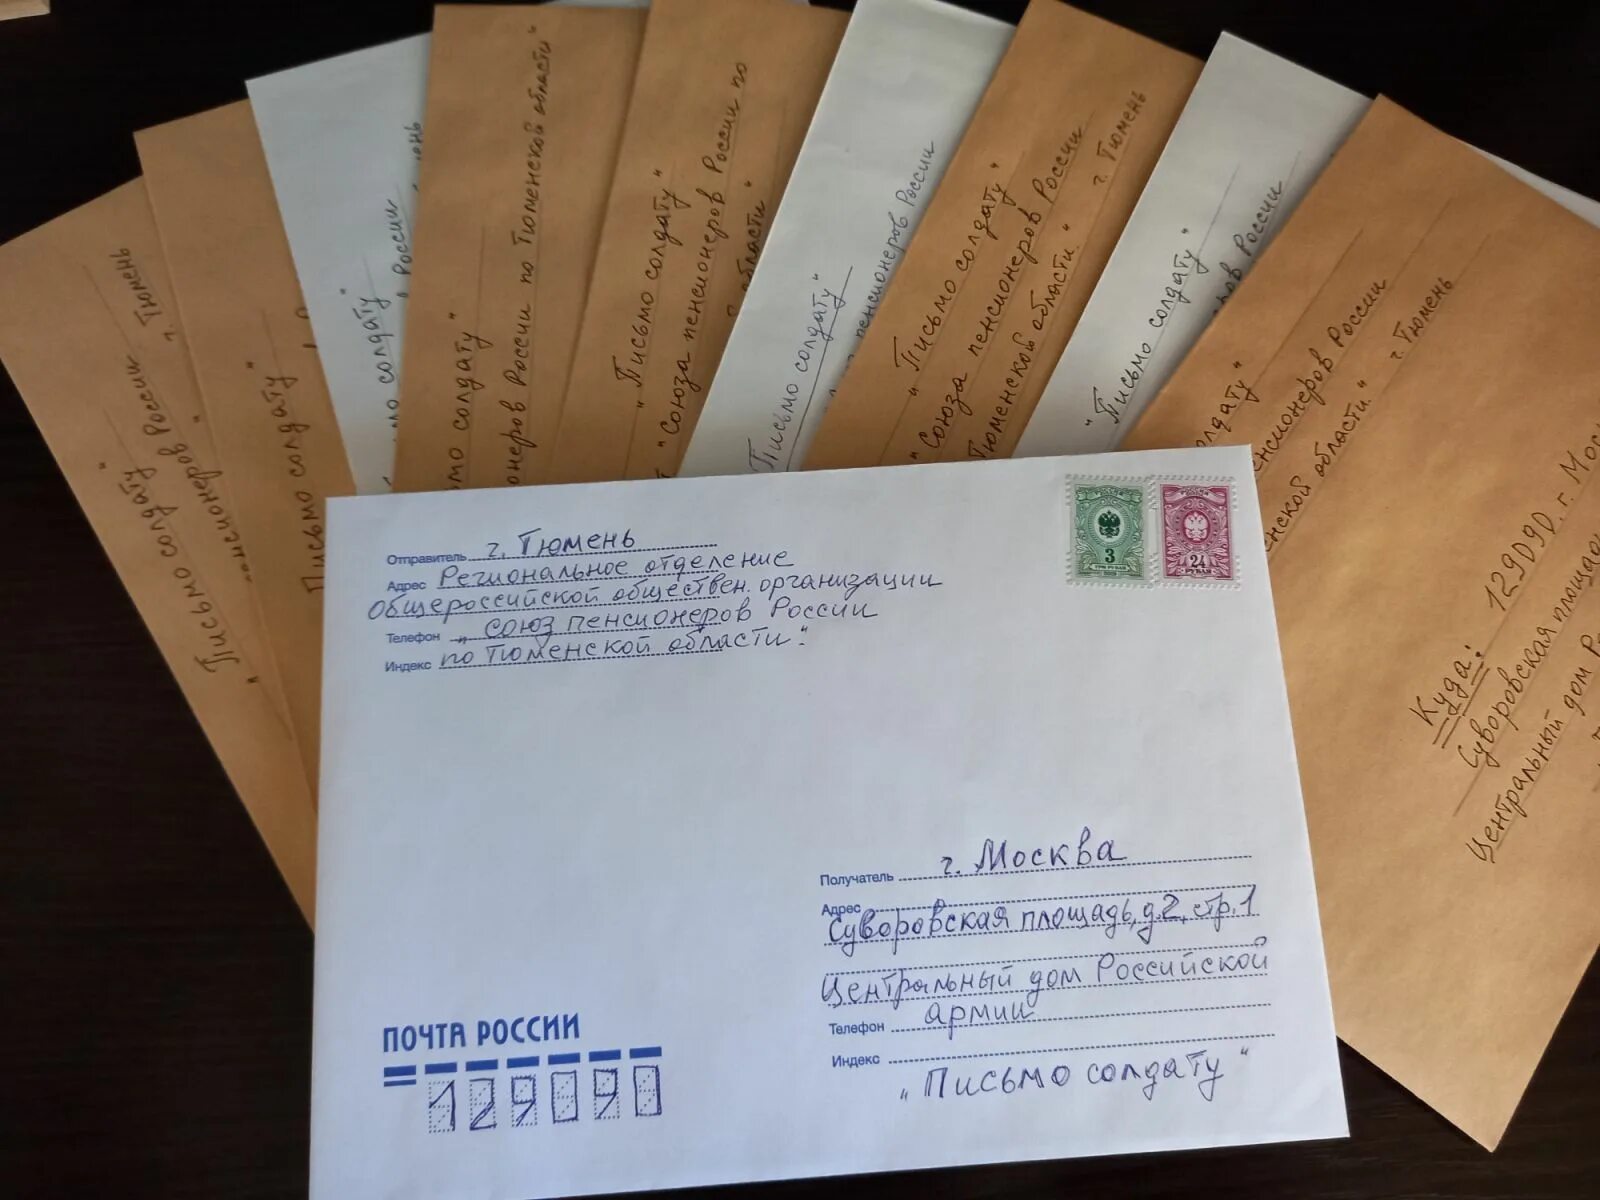 г. Тюмень
"Письмо солдату"
пенсионеров России
Письмо солдату"
мо солдату"
России
ень
мо солдату"
неров России по Тюменской области"
"Письмо солдату"
"Союза пенсионеров России по
области"
"Письмо солдату"
пенсионеров России
"Письмо солдату"
"Союза пенсионеров России
Тюменской области." г. Тюмень
"Письмо солдату"
ров России
олдату"
енсионеров России
енской области." г. Тюмень
Куда: 129090. г. Мос
Суворовская площадь
Центральный дом Р
Отправитель г. Тюмень
Адрес Региональное отделение
Общероссийской обществен. организации
Телефон "союз пенсионеров России
Индекс по Тюменской области".
РОССИЯ
3
ТРИ РУБЛЯ
РОССИЯ
24
РУБЛЯ
Получатель г. Москва
Адрес
Суворовская площадь, д.2, стр.1
Центральный дом Российской
Телефон армии
Индекс
"Письмо солдату"
ПОЧТА РОССИИ
129090